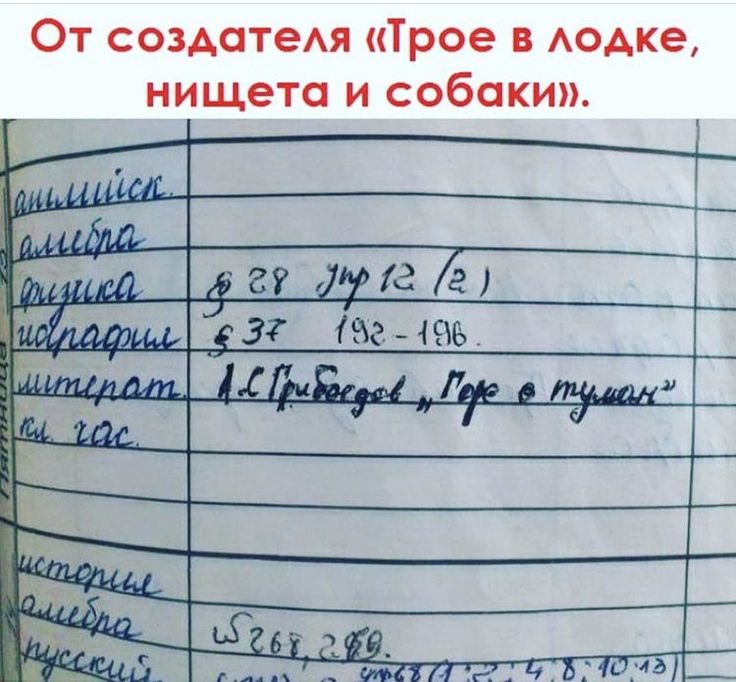 От создателя «Трое в лодке,
нищета и собаки».
английск.
алгебра
физика § 28 упр 12 (2)
география § 37 192-196.
Пятница
литерат. А.С Грибоедов „Горе о туман"
кл. час.
история
алгебра № 268, 269.
русский упр 68 (1; 2; 4; 8; 10; 13)